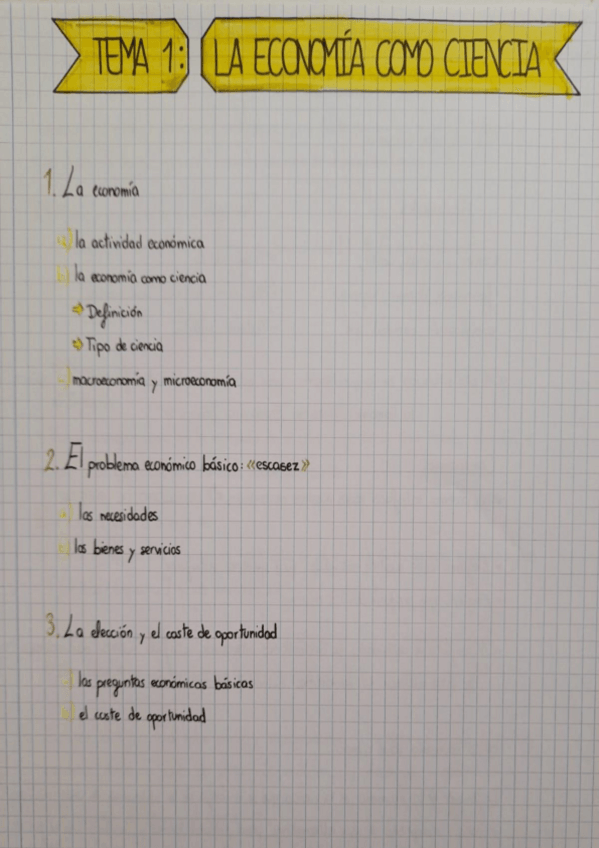 TEMA 1: LA ECONOMÍA COMO CIENCIA
1. La economía
a) la actividad económica
b) la economía como ciencia
⇒ Definición
⇒ Tipo de ciencia
c) macroeconomía y microeconomía
2. El problema económico básico: «escasez»
a) las necesidades
b) los bienes y servicios
3. La elección y el coste de oportunidad
a) las preguntas económicas básicas
b) el coste de oportunidad